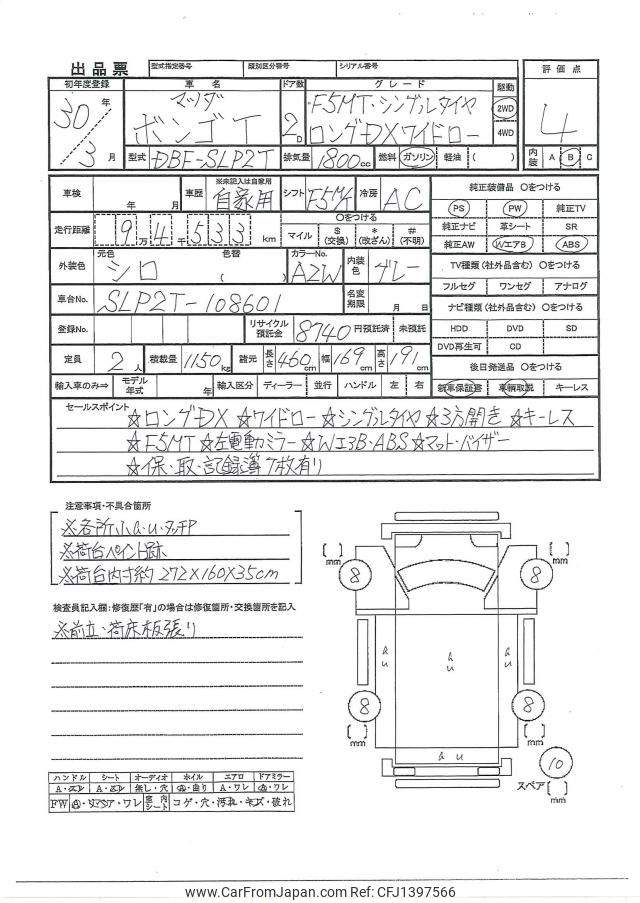 出品票
型式指定番号 類別区分番号 シリアル番号
初年度登録 車名 ドア数 グレード 駆動 評価点
30年 3月
マツダ ボンゴT
2D
F5MT・シングルタイヤ
ロングDXワイドロー
2WD
4WD
4
型式 DBF-SLP2T 排気量 1800cc 燃料 ガソリン 軽油 ( )
内装 A B C
車検 年 月 車歴 ※未記入は自家用 自家用 シフト F5M 冷房 AC
走行距離 9万4千533 km
〇をつける
マイル $(交換) *(改ざん) #(不明)
外装色 元色 シロ 色替 ( ) カラーNo. A2W 内装色 グレー
車台No. SLP2T-108601 名変期限 月 日
登録No. リサイクル預託金 8740 円預託済 未預託
定員 2人 積載量 1150kg 諸元 長さ 460cm 幅 169cm 高さ 191cm
輸入車のみ⇒ モデル年式 年 輸入区分 ディーラー 並行 ハンドル 左 右
純正装備品 〇をつける
PS PW 純正TV
純正ナビ 革シート SR
純正AW WエアB ABS
TV種類(社外品含む) 〇をつける
フルセグ ワンセグ アナログ
ナビ種類(社外品含む) 〇をつける
HDD DVD SD
DVD再生可 CD
後日発送品 〇をつける
新車保証書 車輌取説 キーレス
セールスポイント
☆ロングDX ☆ワイドロー ☆シングルタイヤ ☆3方開き ☆キーレス
☆F5MT ☆左電動ミラー ☆WエアB・ABS ☆マット・バイザー
☆保・取・記録簿7枚有り
注意事項・不具合箇所
※各所小a・u・タッチP
※荷台ペイント跡
※荷台内寸約272×160×35cm
検査員記入欄:修復歴「有」の場合は修復箇所・交換箇所を記入
※前立・荷床板張り
[ ] mm 8
[ ] mm 8
a u
a u
a u
8 [ ] mm
8 [ ] mm
a u
10
スペア [ ] mm
ハンドル シート オーディオ ホイル エアロ ドアミラー
A・スレ A・スレ 無し・穴 A・曲り A・ワレ A・ワレ
FW A・リペア・ワレ 室内シート コゲ・穴・汚れ・キズ・破れ
www.CarFromJapan.com Ref: CFJ1397566